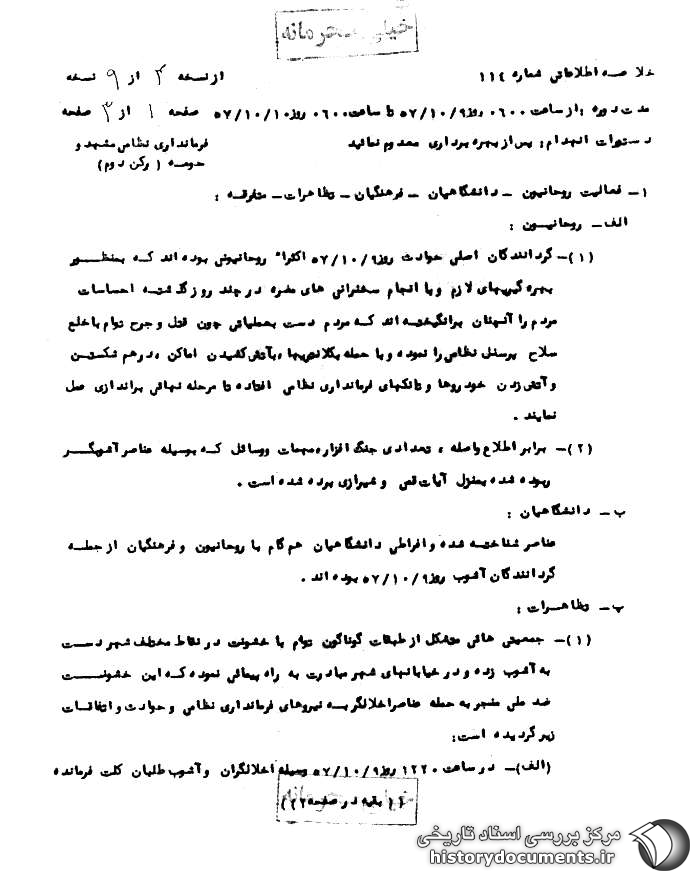 خیلی محرمانه
خلاصه اطلاعاتی شماره ۱۱۴ از نسخه ۳ از ۹ نسخه
مدت دوره : از ساعت ۰۶۰۰ روز ۵۷/۱۰/۹ تا ساعت ۰۶۰۰ روز ۵۷/۱۰/۱۰ صفحه ۱ از ۳ صفحه
دستورات انهدام: پس از بهره برداری معدوم نمائید فرمانداری نظامی مشهد و
حومه ( رکن دوم )
۱- فعالیت روحانیون - دانشگاهیان - فرهنگیان - تظاهرات - متفرقه :
الف - روحانیون :
(۱)- گردانندگان اصلی حوادث روز ۵۷/۱۰/۹ اکثراً روحانیونی بوده اند که بمنظور
بهره گیریهای لازم و با انجام سخنرانی های مضره در چند روز گذشته احساسات
مردم را آنچنان برانگیخته اند که مردم دست بعملیاتی چون قتل و جرح توام با خلع
سلاح پرسنل نظامی را نموده و با حمله بکلانتریها ، بآتش کشیدن اماکن ، درهم شکستن
و آتش زدن خودروها و تانکهای فرمانداری نظامی افتاده تا مرحله نهائی براندازی عمل
نمایند .
(۲)- برابر اطلاع واصله ، تعدادی جنگ افزار ، مهمات و وسائل که بوسیله عناصر آشوبگر
ربوده شده بمنزل آیات قمی و شیرازی برده شده است .
ب - دانشگاهیان :
عناصر شناخته شده و افراطی دانشگاهیان هم گام با روحانیون و فرهنگیان از جمله
گردانندگان آشوب روز ۵۷/۱۰/۹ بوده اند .
پ - تظاهرات :
(۱)- جمعیتی هائی متشکل از طبقات گوناگون توام با خشونت در نقاط مختلف شهر دست
به آشوب زده و در خیابانهای شهر مبادرت به راه پیمائی نموده که این خشونت
ضد ملی منجر به حمله عناصر اخلالگر به نیروهای فرمانداری نظامی و حوادث و اتفاقات
زیر گردیده است:
(الف)- در ساعت ۱۲۲۰ روز ۵۷/۱۰/۹ بوسیله اخلالگران و آشوب طلبان کلت فرمانده
خیلی محرمانه
بقیه در صفحه
مرکز بررسی اسناد تاریخی
historydocuments.ir